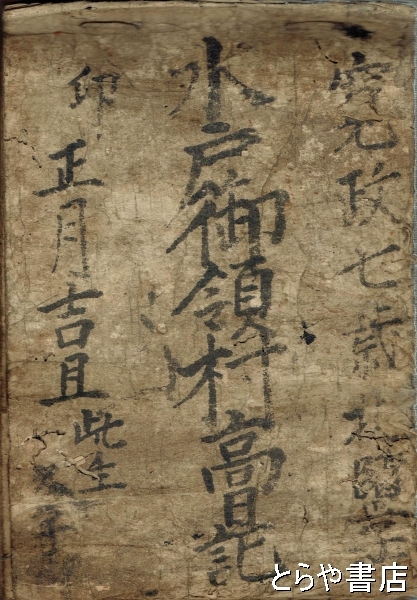 寛政七歳
水戸御領村高日記
卯正月吉旦
此主
とらや書店